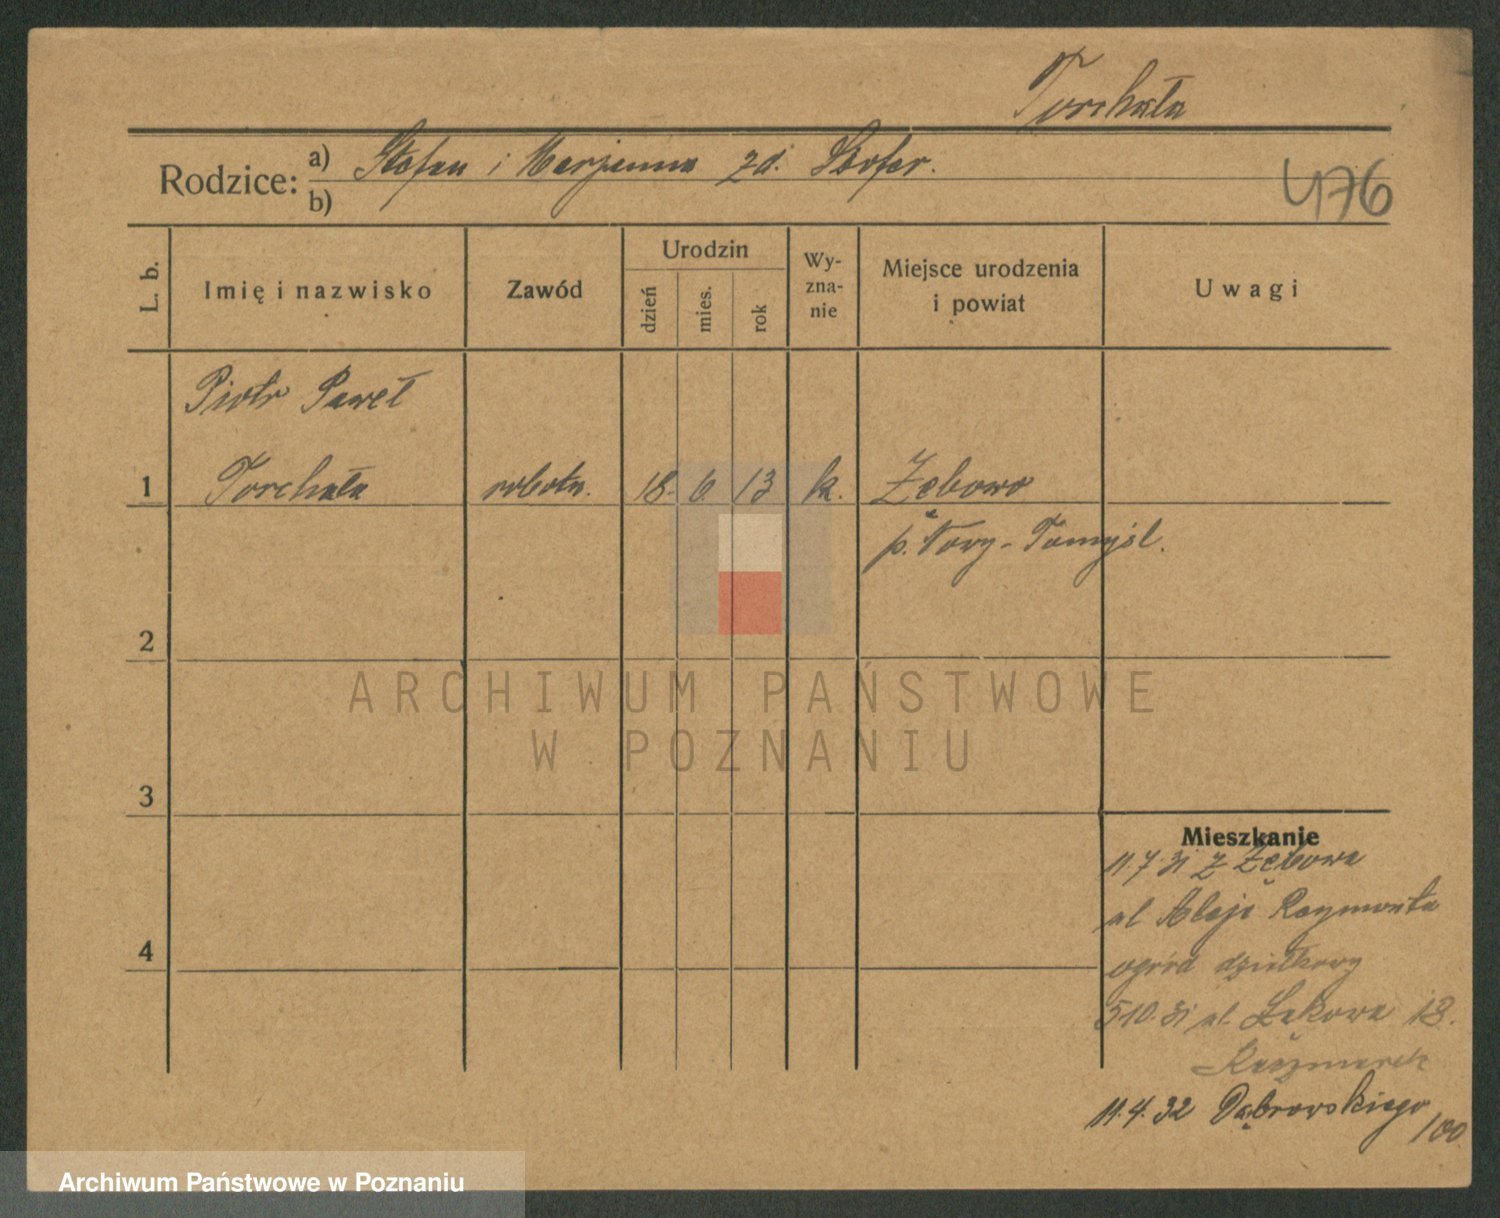 Torchała
Rodzice: a) Stefan i Marjanna zd. Stofer.
b)
476
L. b.
Imię i nazwisko
Zawód
Urodzin
dzień
mies.
rok
Wy-
zna-
nie
Miejsce urodzenia
i powiat
Uwagi
Piotr Paweł
1 Torchała robotn. 18. 6. 13 k. Zębowo
p. Nowy-Tomyśl.
2
3
4
Mieszkanie
11.7.31 z Zębowa
ul Aleje Reymonta
ogród działkowy
5 10. 31 ul. Łąkowa 18.
Kaczmarek
11.4.32 Dąbrowskiego
100
ARCHIWUM PAŃSTWOWE
W POZNANIU
Archiwum Państwowe w Poznaniu